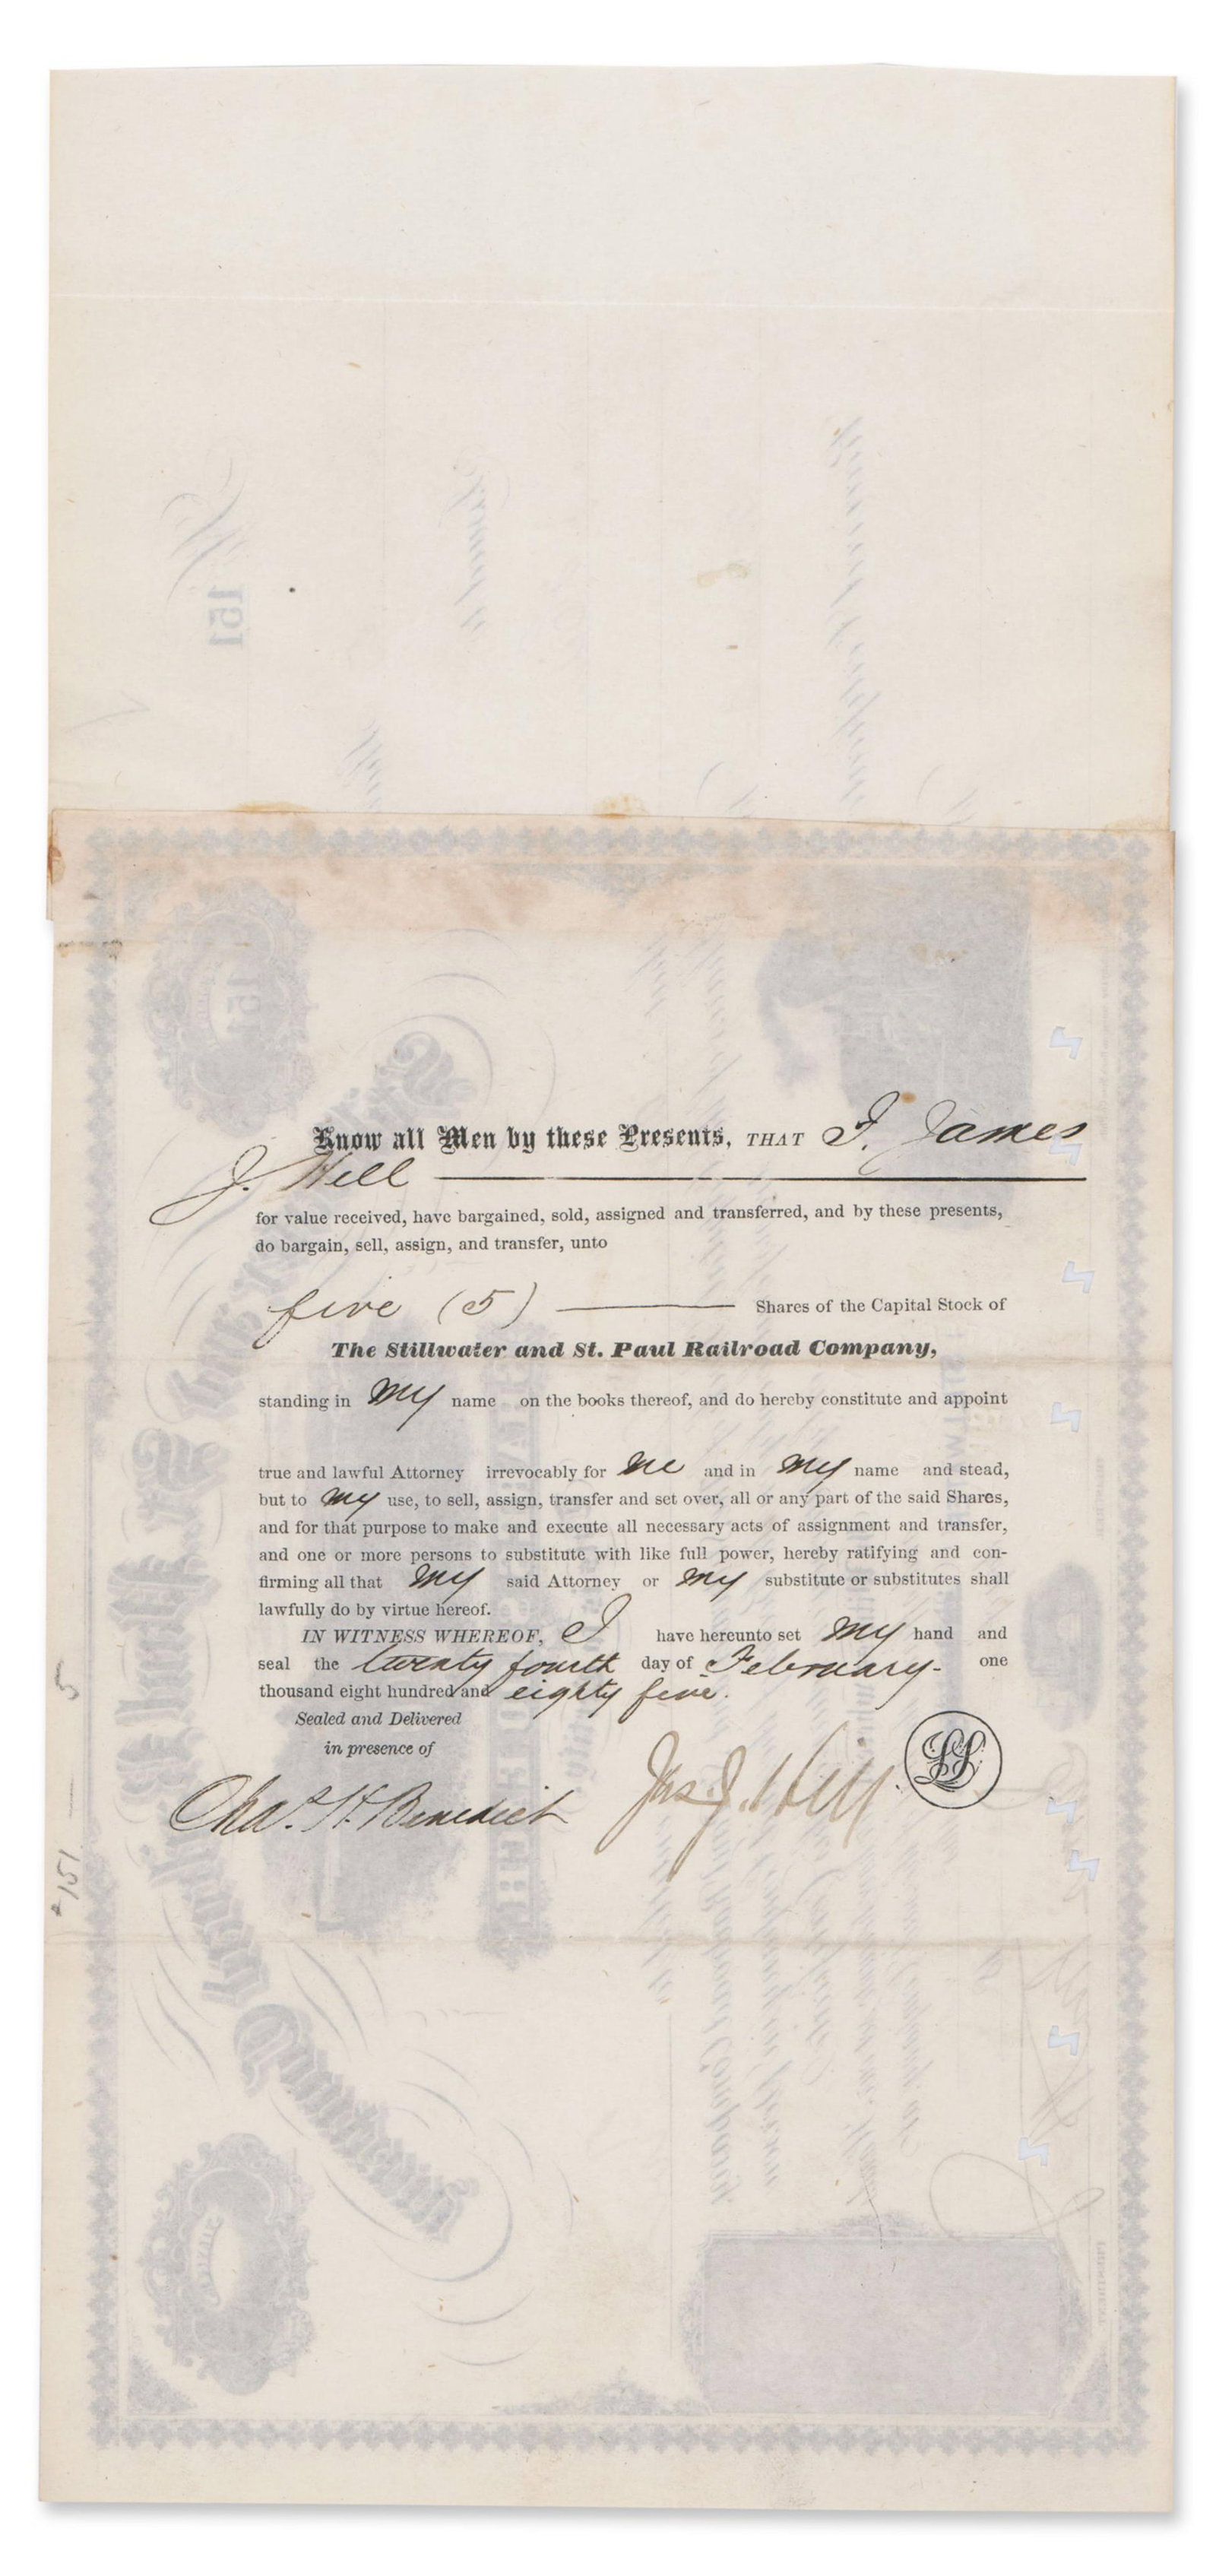 151
Know all Men by these Presents, THAT I, James
J. Hill
for value received, have bargained, sold, assigned and transferred, and by these presents,
do bargain, sell, assign, and transfer, unto
five (5) Shares of the Capital Stock of
The Stillwater and St. Paul Railroad Company,
standing in my name on the books thereof, and do hereby constitute and appoint
true and lawful Attorney irrevocably for me and in my name and stead,
but to my use, to sell, assign, transfer and set over, all or any part of the said Shares,
and for that purpose to make and execute all necessary acts of assignment and transfer,
and one or more persons to substitute with like full power, hereby ratifying and con-
firming all that my said Attorney or my substitute or substitutes shall
lawfully do by virtue hereof.
IN WITNESS WHEREOF, I have hereunto set my hand and
seal the twenty fourth day of February one
thousand eight hundred and eighty five.
Sealed and Delivered
in presence of
Chas. H. Benedict Jas. J. Hill LS
151 — 5